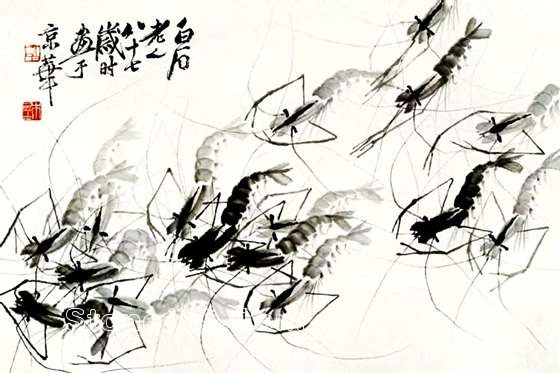 白石
老人
八十七
歲时
畫于
京華